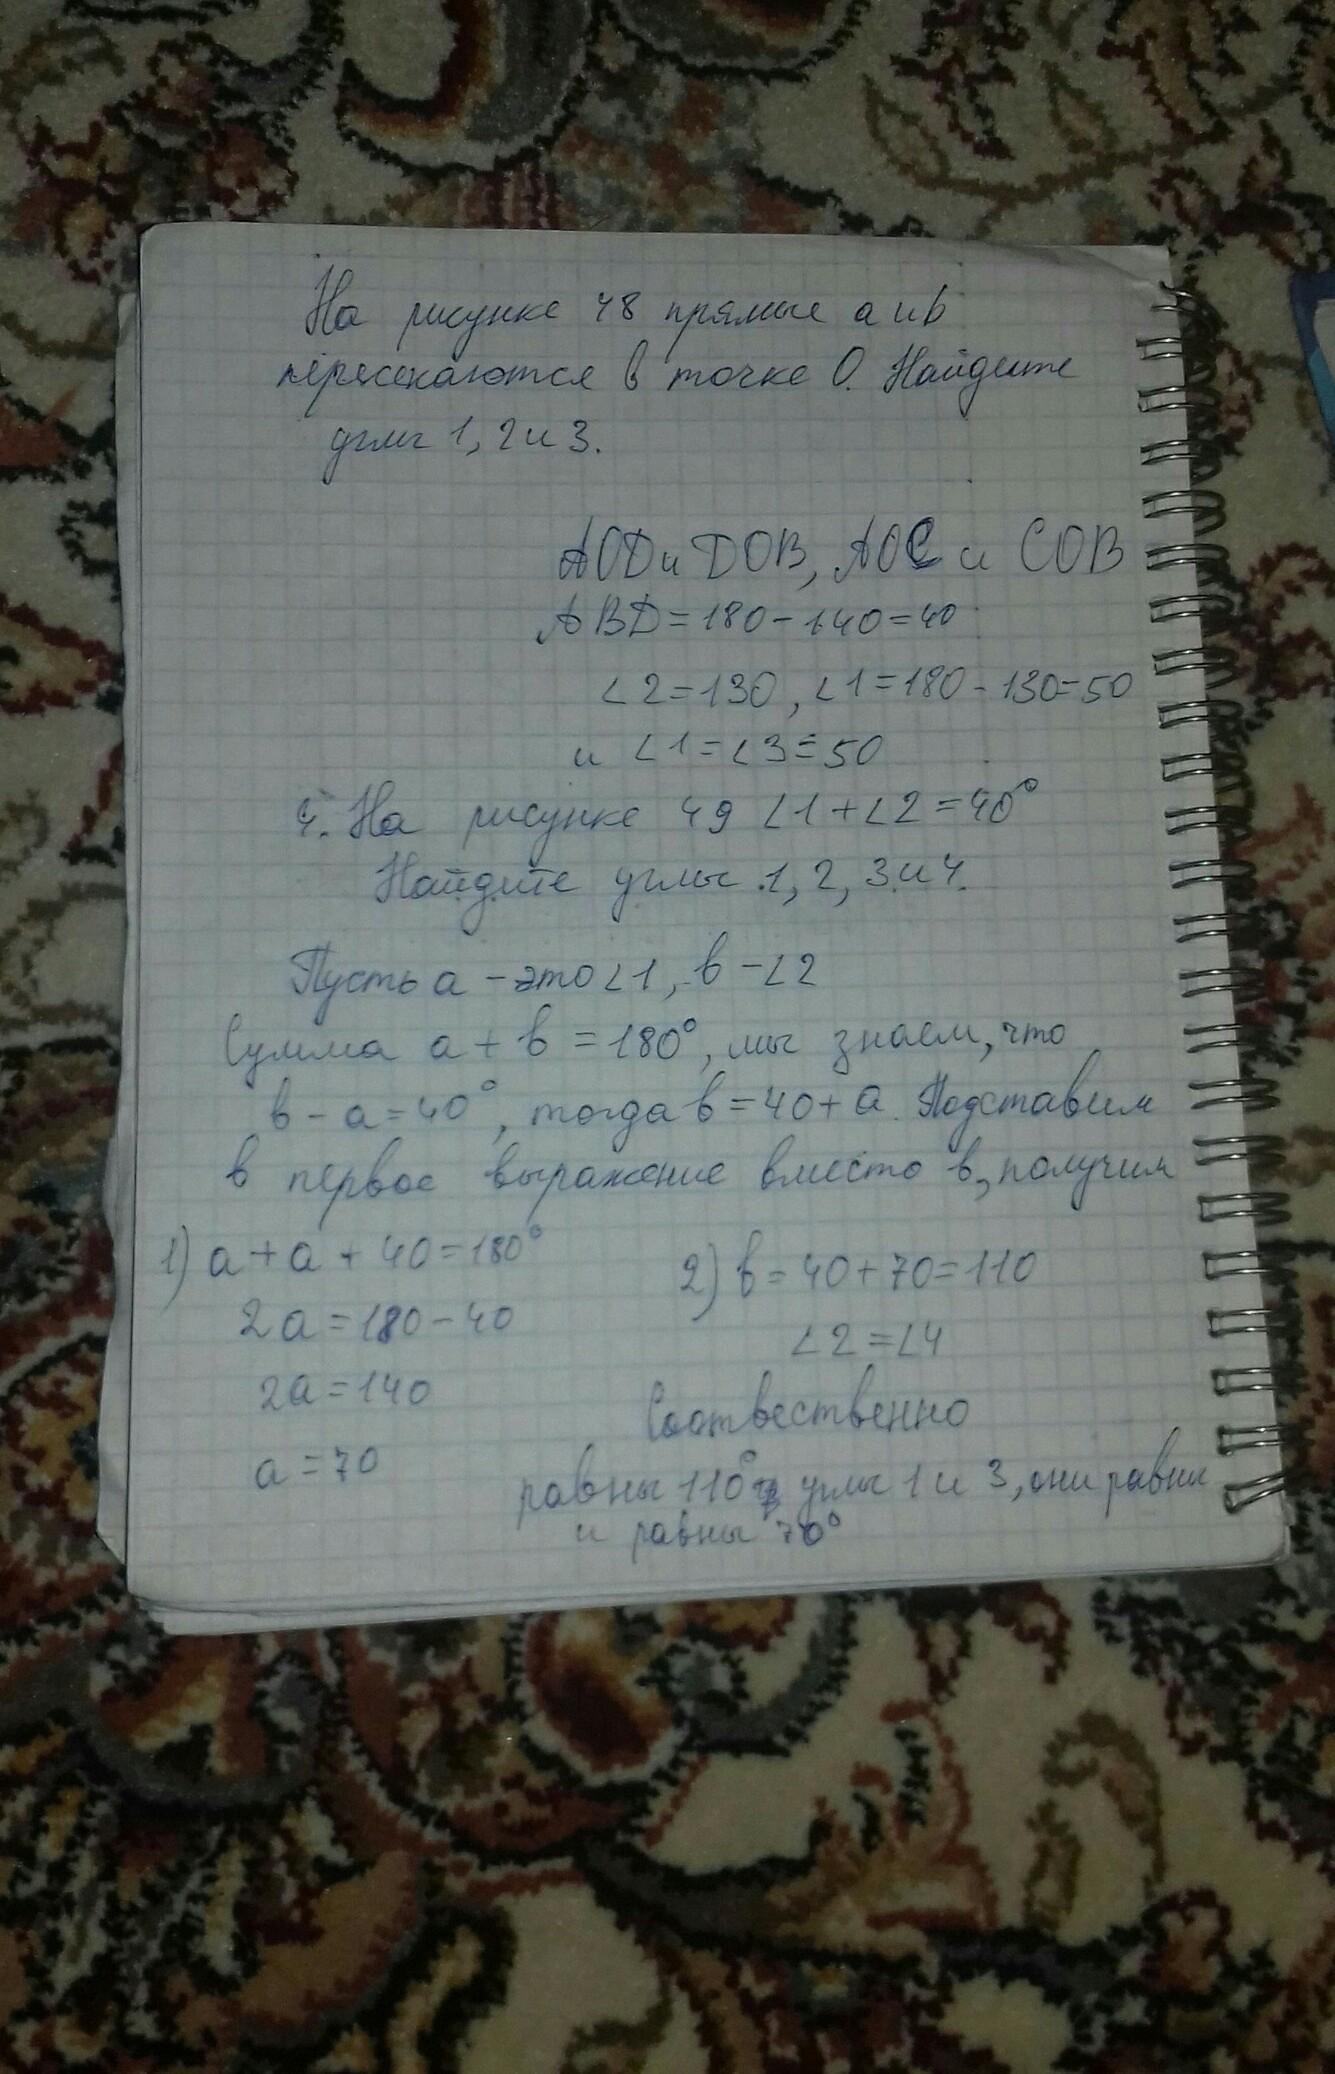 На рисунке 48 прямые a и b
пересекаются в точке О. Найдите
углы 1, 2 и 3.
АОD и DОВ, АОС и СОВ
АВD = 180 - 140 = 40
∠2 = 130, ∠1 = 180 - 130 = 50
и ∠1 = ∠3 = 50
4. На рисунке 49 ∠1 + ∠2 = 40°
Найдите углы 1, 2, 3 и 4.
Пусть а - это ∠1, в - ∠2
Сумма а + в = 180°, мы знаем, что
в - а = 40°, тогда в = 40 + а. Подставим
в первое выражение вместо в, получим
1) а + а + 40 = 180°
2а = 180 - 40
2а = 140
а = 70
2) в = 40 + 70 = 110
∠2 = ∠4
Соотвественно
равны 110° углы 1 и 3, они равны
и равны 70°